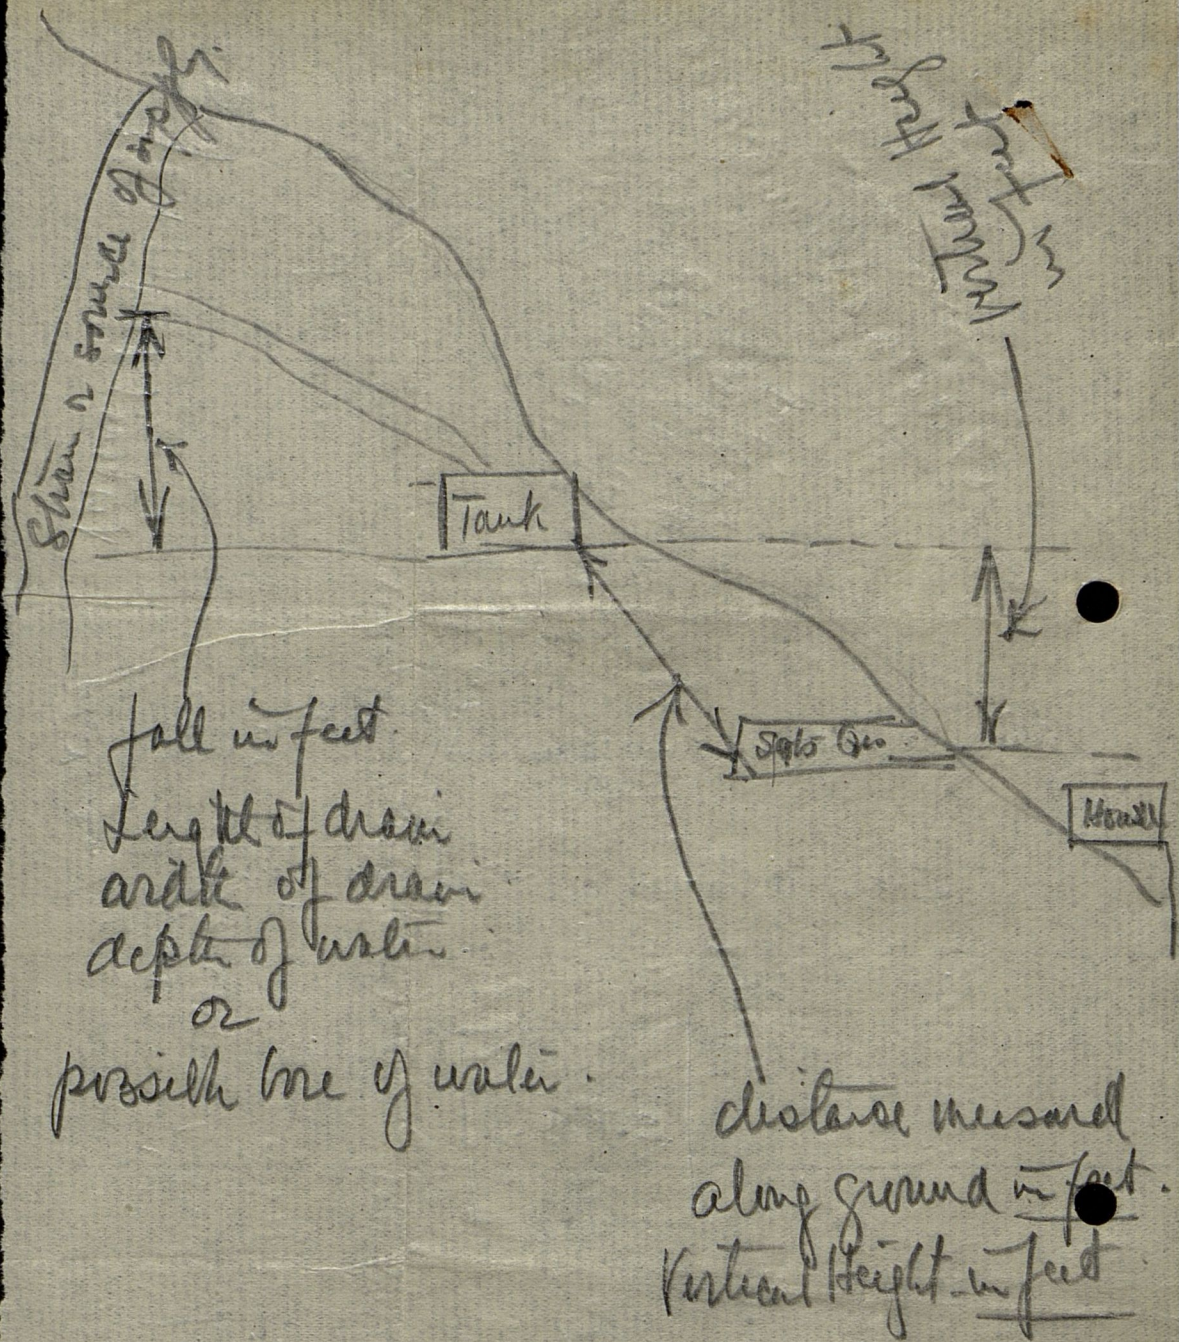 Stream or source of supply
Vertical Height
in feet
Tank
House
fall in feet.
Length of drain
width of drain
depth of water
or
possible bore of water.
distance measured
along ground in feet.
Vertical Height in feet